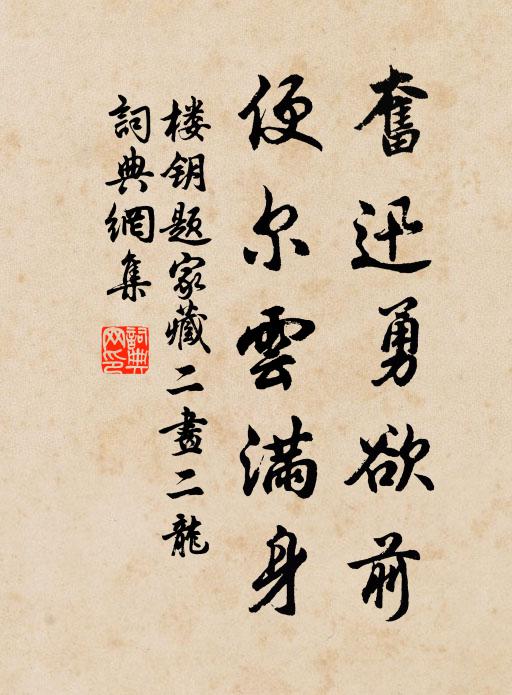 奮迅勇欲前
便尔雲滿身
楼钥题家藏二畫二龍
詞典網集
詞典網印